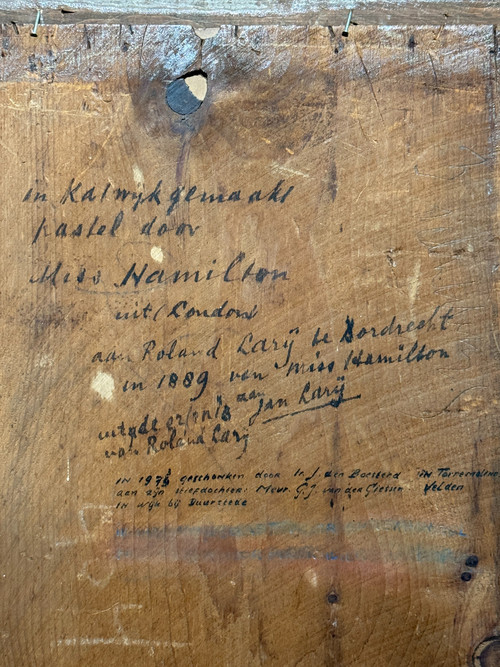 in Katwijk gemaakt
pastel door
Miss Hamilton
uit (London)
aan Roland Larÿ te Dordrecht
in 1889 van Miss Hamilton
uit de erfnis aan Jan Larÿ
van Roland Larÿ
in 1975 geschonken door Ir. J. den Boesterd in Torremolinos
aan zijn pleegdochter Mevr. G.J. van der Velden
in Wijk bij Duurstede